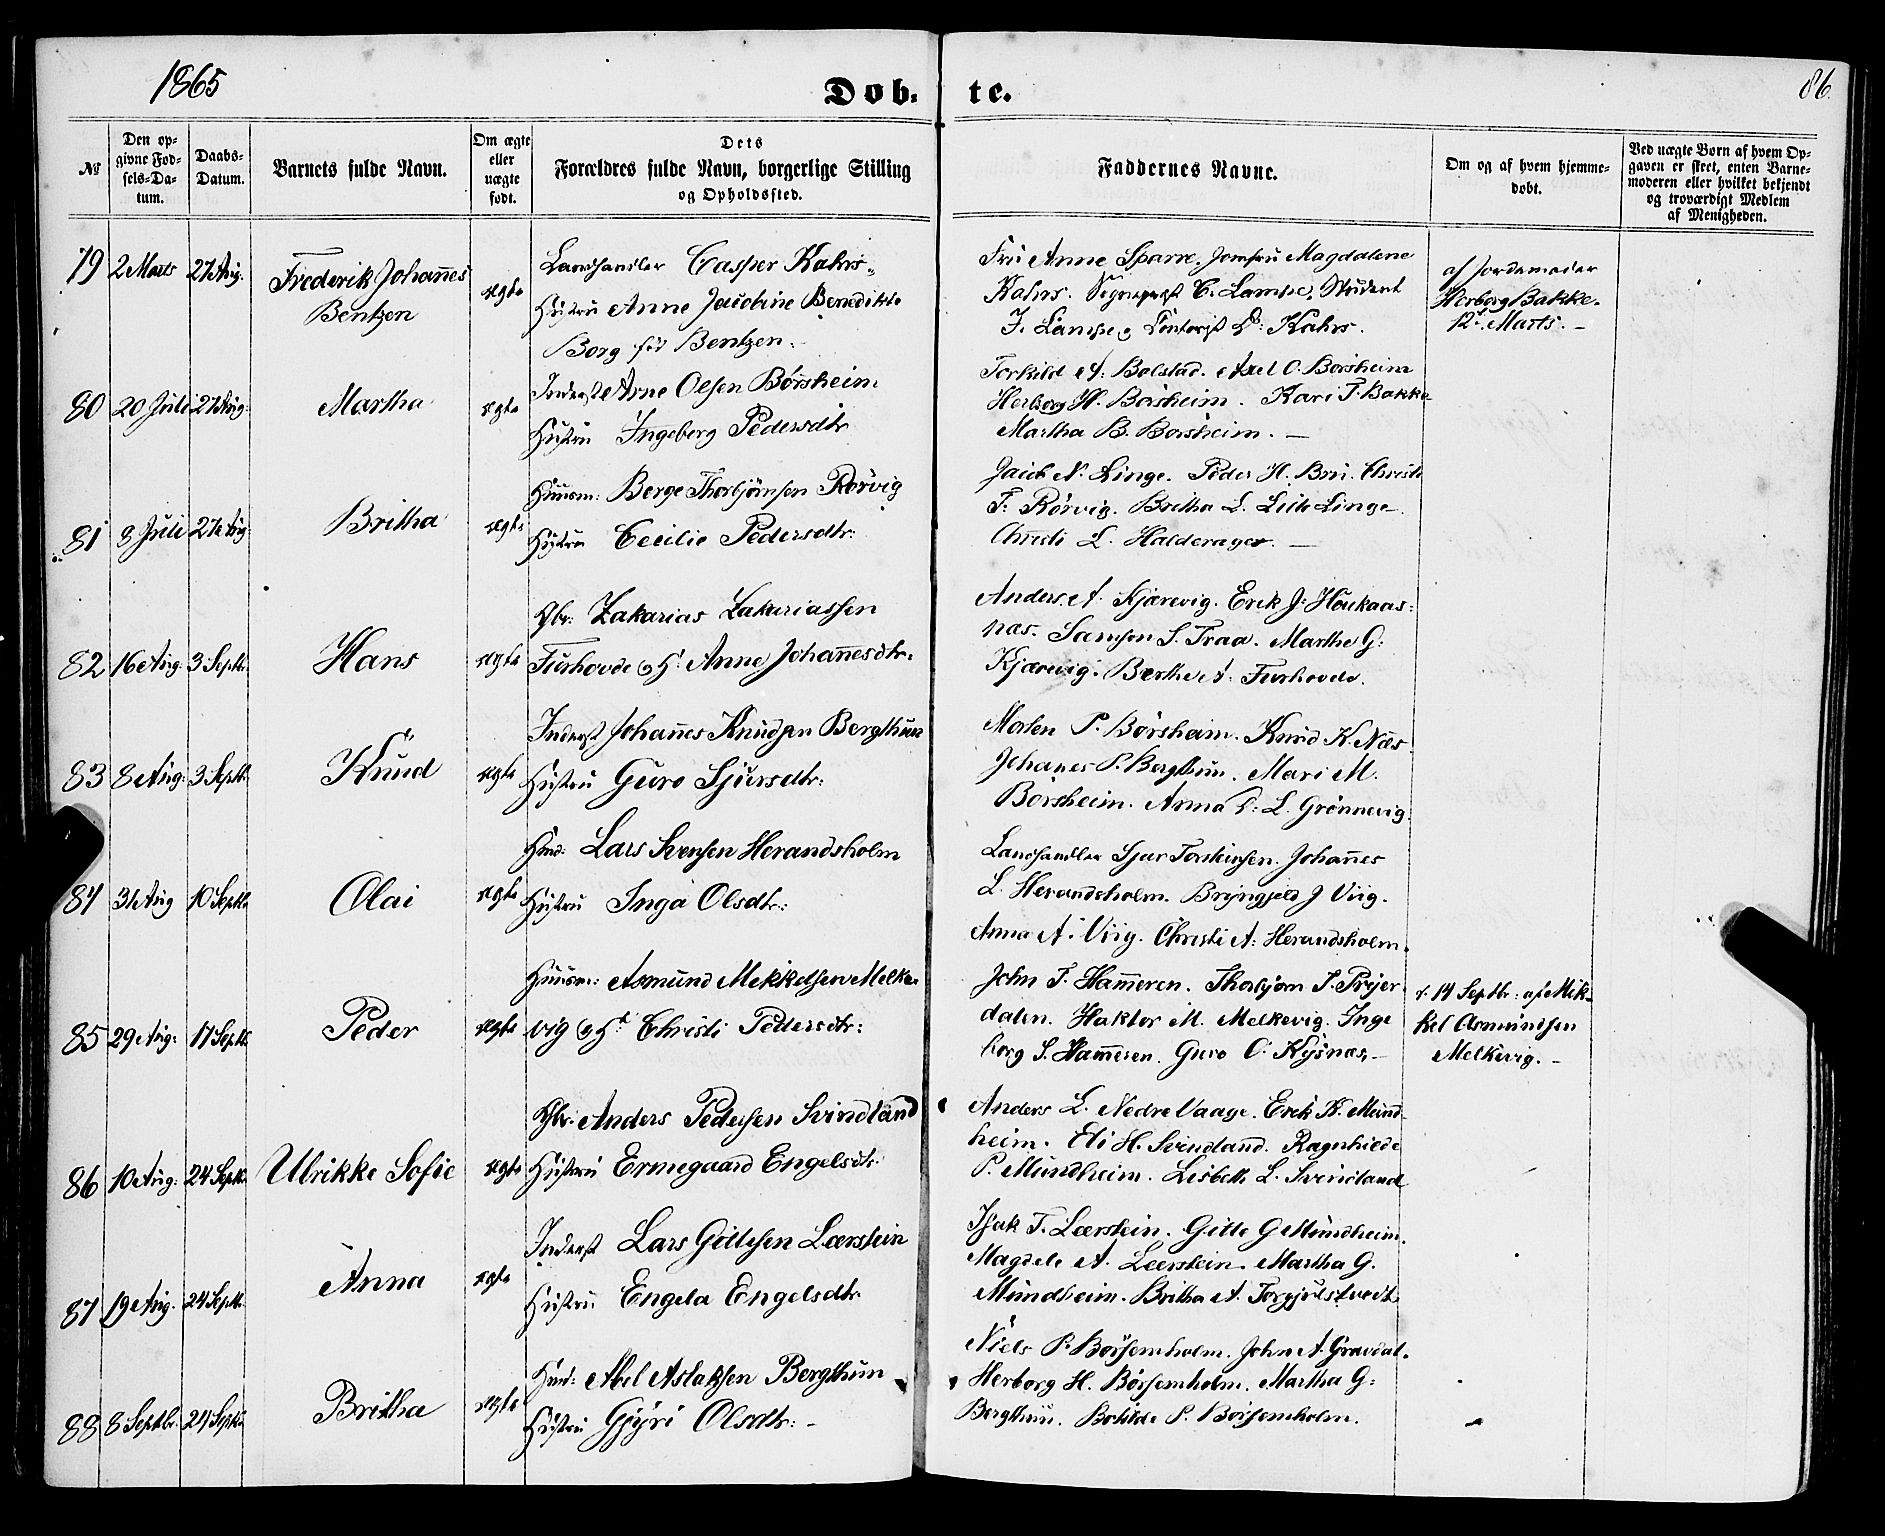 1865
Døb-
te.
86.
№
Den op-
givne Fød-
sels-Da-
tum.
Daabs-
Datum.
Barnets fulde Navn.
Om ægte
eller
uægte
født.
Dets
Forældres fulde Navn, borgerlige Stilling
og Opholdssted.
Faddernes Navne.
Om og af hvem hjemme-
døbt.
Ved uægte Børn af hvem Op-
gaven er skeet, enten Barne-
moderen eller hvilket bekjendt
og troværdigt Medlem
af Menigheden.
79 2 Marts 27 Aug. Frederik Johannes
Bentzen
ægte
Landhandler Casper Kahrs
Hustru Anne Jacobine Benedikte
Borg født Bentzen.
Fru Anne Sparre. Jomfru Magdalene
Kahrs. C. Lampe, Student
J. Lampe, Kahrs.
af Jordemoder
Herborg Bakke.
12te Marts. –
80 20 Juli 27 Aug. Martha ægte
Inderst Arne Olsen Børsheim
Hustru Ingeberg Pedersdtr
Torkild A. Bolstad. Axel O. Børsheim
Herborg H. Børsheim. Kari T. Bakke
Martha B. Børsheim. –
81 8 Juli 27 Aug. Britha ægte
Huusm: Berge Thorbjørnsen Rørvig
Hustru Cecilie Pedersdtr:
N. Linge. Peder H. Bru. Christi
T. Rørvig. Britha L. Linge.
Christi L. Halderager. –
82 16 Aug. 3 Septbr. Hans ægte
Gbr: Zakarias Zakariassen
Furhovde og H. Anne Johannesdtr.
Anders A. Kjærevig. Erik J. Houkaas-
næs. Samson S. Traa. Marthe G.
Kjærevig. Berthe A. Furhovde.
83 8 Aug. 3 Septbr. Knud ægte
Inderst Johannes Knudsen Bergthun
Hustru Guro Sjursdtr:
Morten P. Børsheim. Knud K. Næs
Johanes P. Bergthun. Mari M.
Børsheim. Anna L. Grønnevig.
84 31 Aug 10 Septbr. Olai ægte
Hmd: Lars Svensen Herandsholm
Hustru Inga Olsdtr:
Landhandler Sjur Torsteinsen. Johannes
L. Herandsholm. Bryngjeld J Viig.
Anna A. Viig. Christi A. Herandsholm.
85 29 Aug. 17 Septbr. Peder ægte
Huusm: Asmund Mikkelsen Melke-
vig og H. Christi Pedersdtr:
John T. Hammeren. Thorbjørn T. Frøjer-
dalen. Haktor M. Melkevig. Inge
borg S. Hammeren. Guro O. Kysnæs. –
d. 14 Septbr: af Mik-
kel Asmundsen
Melkevig. –
86 10 Aug. 24 Septbr. Ulrikke Sofie ægte
Gbr. Anders Pedersen Svindland
Hustru Ermegaard Engelsdtr.
Anders L. Nedre Vaage. Erik K. Mund-
heim. Eli H. Svindland. Ragnhilde
P. Mundheim. Lisbeth L. Svindland
87 19 Aug. 24 Septbr. Anna ægte
Inderst Lars Gittesen Leerstein
Hustru Engela Engelsdtr.
Isak T. Leerstein. Gitte G Mundheim.
Magdele A. Leerstein. Martha G.
Mundheim. Britha A. Torgjulstvedt
88 8 Septbr. 24 Septbr. Britha ægte
Hmd: Abel Aslaksen Bergthun
Hustru Gjyri Olsdtr: –
Niels P. Børsemholm. John A. Gravdal.
Herborg H. Børsemholm. Martha G.
Bergthun. Bothilde P. Børsemholm.